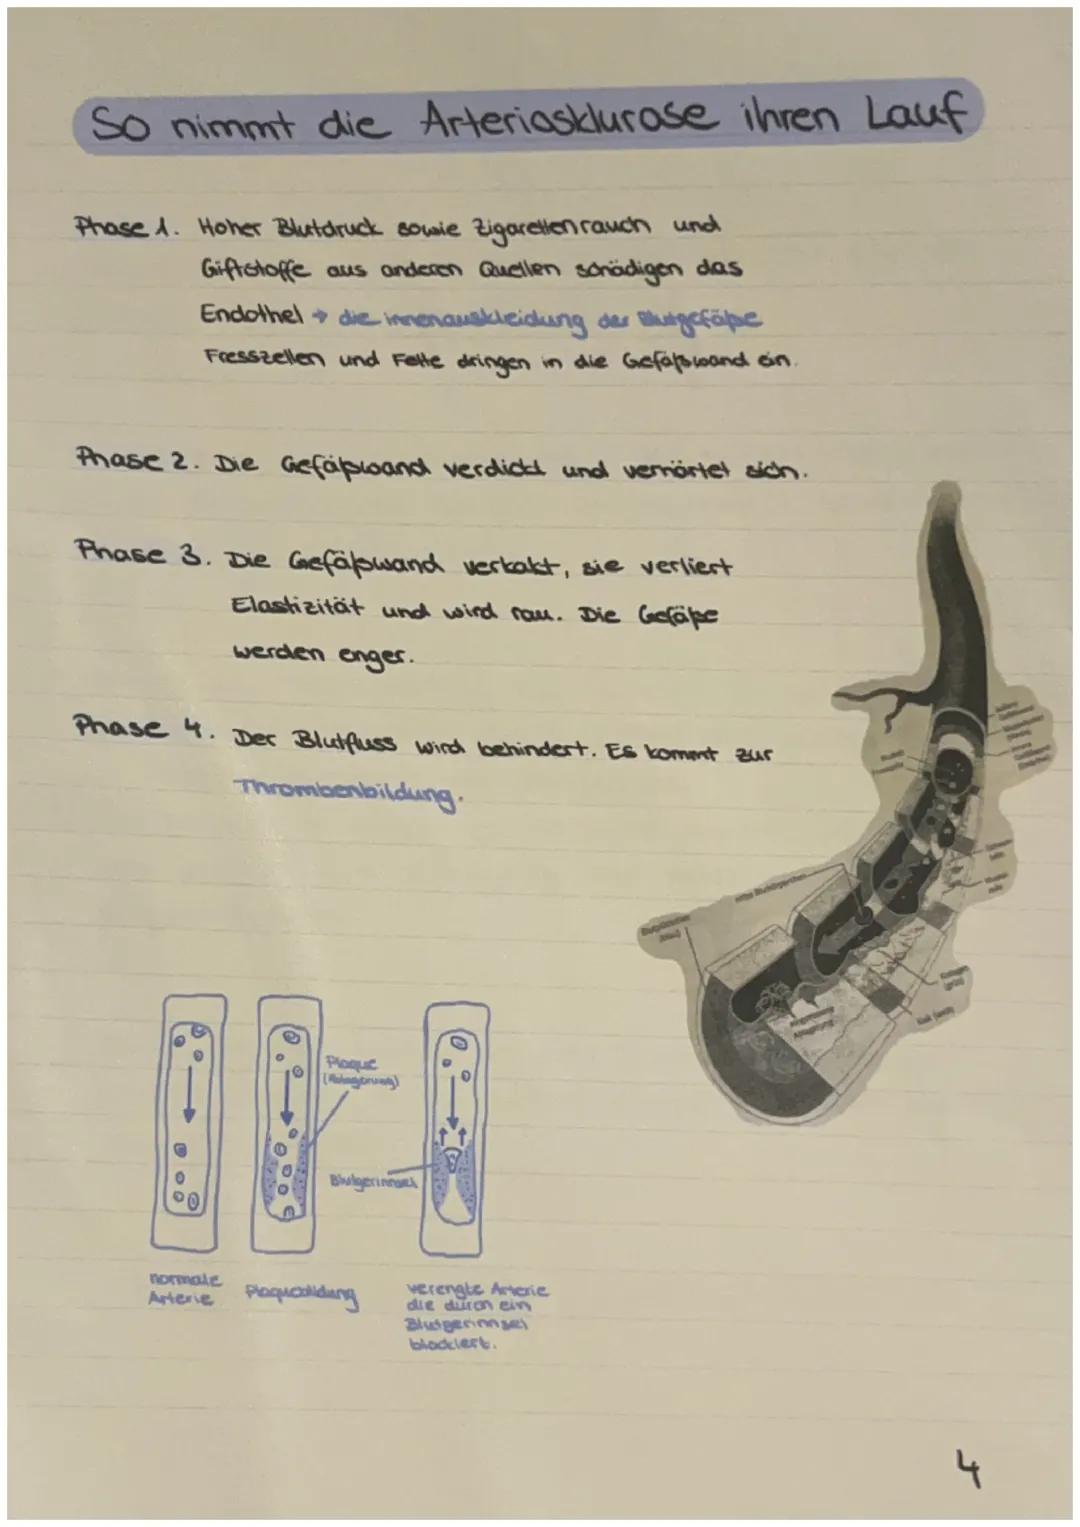 So nimmt die Arteriosklurose ihren Lauf
Phase 1. Hoher Blutdruck sowie Zigarettenrauch und
Giftstoffe aus anderen Quellen schädigen das
Endothel → die innenauskleidung der Blutgefäße
Fresszellen und Fette dringen in die Gefäßwand ein.
Phase 2. Die Gefäßwand verdickt und verhärtet sich.
Phase 3. Die Gefäßwand verkalkt, sie verliert
Elastizität und wird rau. Die Gefäße
werden enger.
Phase 4. Der Blutfluss wird behindert. Es kommt zur
Thrombenbildung.
rotes Blutkörperchen
Kalk (weiß)
Plaque
(Ablagerung)
Blutgerinnsel
normale
Arterie
Plaquebildung
verengte Arterie
die durch ein
Blutgerinnsel
blockiert.
4